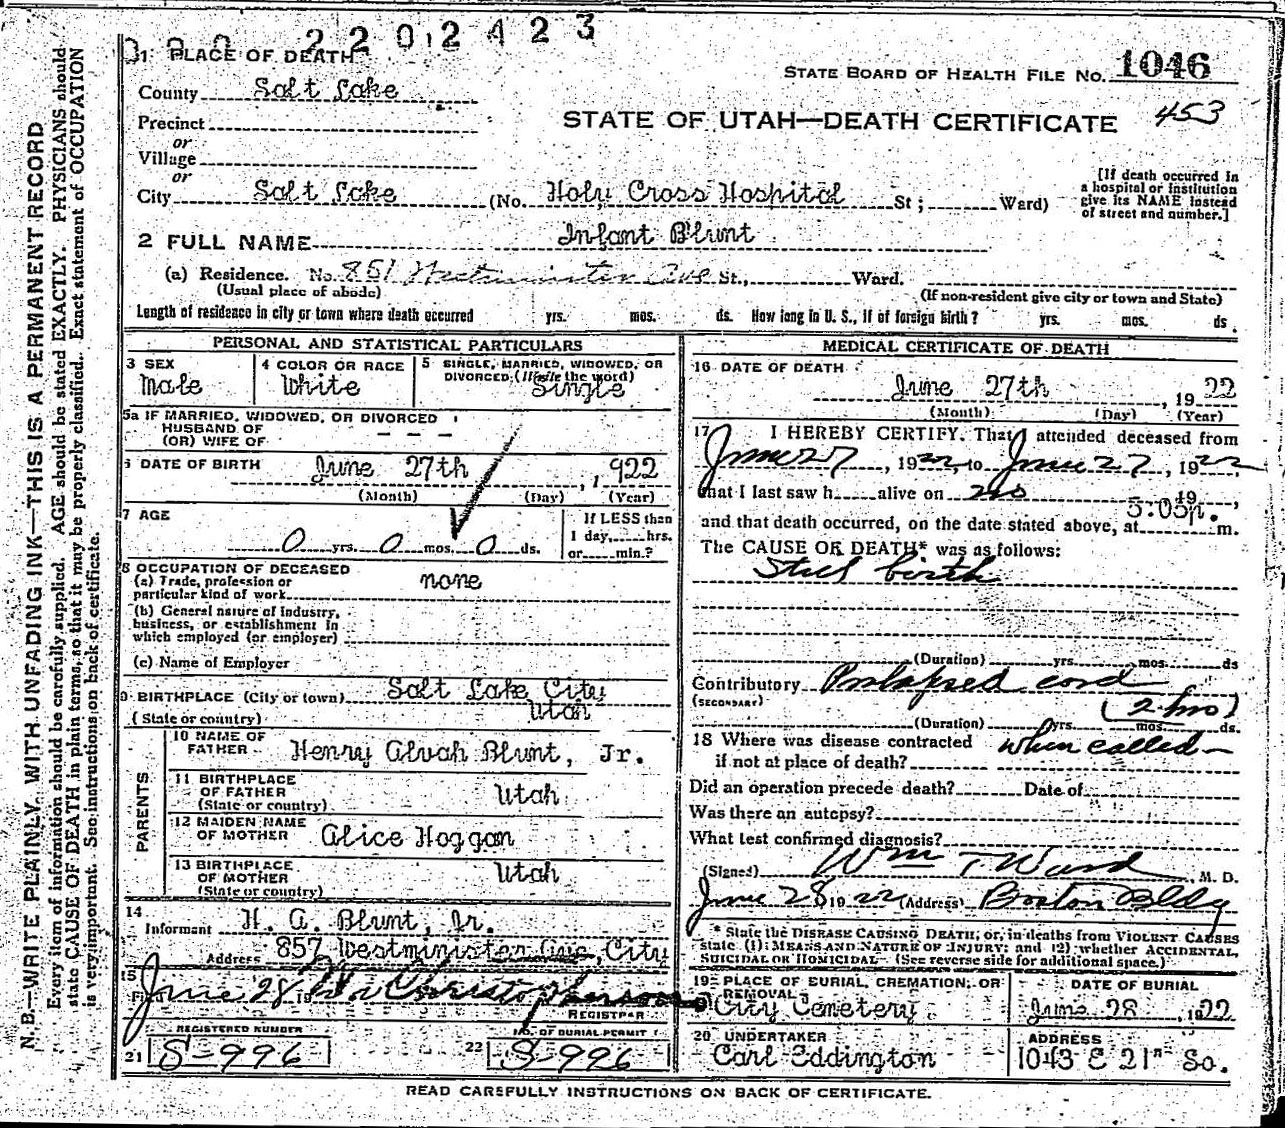 2202423
1 PLACE OF DEATH
STATE BOARD OF HEALTH FILE NO. 1046
County Salt Lake
STATE OF UTAH—DEATH CERTIFICATE 453
Precinct
or
Village
or
City Salt Lake (No. Holy Cross Hospital St; Ward)
[If death occurred in
a hospital or institution
give its NAME instead
of street and number.]
2 FULL NAME Infant Blunt
(a) Residence. No. 851 Westminster Ave St., Ward.
(Usual place of abode) (If non-resident give city or town and State)
Length of residence in city or town where death occurred yrs. mos. ds. How long in U. S., if of foreign birth? yrs. mos. ds.
PERSONAL AND STATISTICAL PARTICULARS
3 SEX
Male
4 COLOR OR RACE
White
5 SINGLE, MARRIED, WIDOWED, OR
DIVORCED (Write the word)
Single
5a IF MARRIED, WIDOWED, OR DIVORCED
HUSBAND OF
(OR) WIFE OF - - -
6 DATE OF BIRTH June 27th, 1922
(Month) (Day) (Year)
7 AGE
0 yrs. 0 mos. 0 ds.
If LESS than
1 day, hrs.
or min.?
8 OCCUPATION OF DECEASED
(a) Trade, profession or
particular kind of work none
(b) General nature of industry,
business, or establishment in
which employed (or employer)
(c) Name of Employer
9 BIRTHPLACE (City or town) Salt Lake City
(State or country) Utah
PARENTS
10 NAME OF
FATHER Henry Alvah Blunt, Jr.
11 BIRTHPLACE
OF FATHER Utah
(State or country)
12 MAIDEN NAME
OF MOTHER Alice Hoggan
13 BIRTHPLACE
OF MOTHER Utah
(State or country)
14
Informant H. A. Blunt, Jr.
Address 857 Westminister Ave, City
15
Filed June 28 19
REGISTRAR
REGISTERED NUMBER
21 S-996
NO. OF BURIAL PERMIT
22 S-996
MEDICAL CERTIFICATE OF DEATH
16 DATE OF DEATH
June 27th, 1922
(Month) (Day) (Year)
17 I HEREBY CERTIFY, That I attended deceased from
June 27, 1922, to June 27, 1922,
that I last saw h alive on no 19 ,
and that death occurred, on the date stated above, at 5:05 p. m.
The CAUSE OF DEATH* was as follows:
Still birth
(Duration) yrs. mos. ds
Contributory Prolapsed cord
(SECONDARY) (2 hrs)
(Duration) yrs. mos. ds.
18 Where was disease contracted
if not at place of death? when called
Did an operation precede death? Date of
Was there an autopsy?
What test confirmed diagnosis?
(Signed) Wm T Ward M. D.
June 28 1922 (Address) Boston Bldg
* State the DISEASE CAUSING DEATH; or, in deaths from VIOLENT CAUSES
state (1) MEANS AND NATURE OF INJURY; and (2) whether ACCIDENTAL,
SUICIDAL OR HOMICIDAL. (See reverse side for additional space.)
19 PLACE OF BURIAL, CREMATION, OR
REMOVAL
City Cemetery
DATE OF BURIAL
June 28, 1922
20 UNDERTAKER
Carl Eddington
ADDRESS
1043 E 21st So.
READ CAREFULLY INSTRUCTIONS ON BACK OF CERTIFICATE.
N. B.—WRITE PLAINLY, WITH UNFADING INK—THIS IS A PERMANENT RECORD
Every item of information should be carefully supplied. AGE should be stated EXACTLY. PHYSICIANS should
state CAUSE OF DEATH in plain terms, so that it may be properly classified. Exact statement of OCCUPATION
is very important. See instructions on back of certificate.